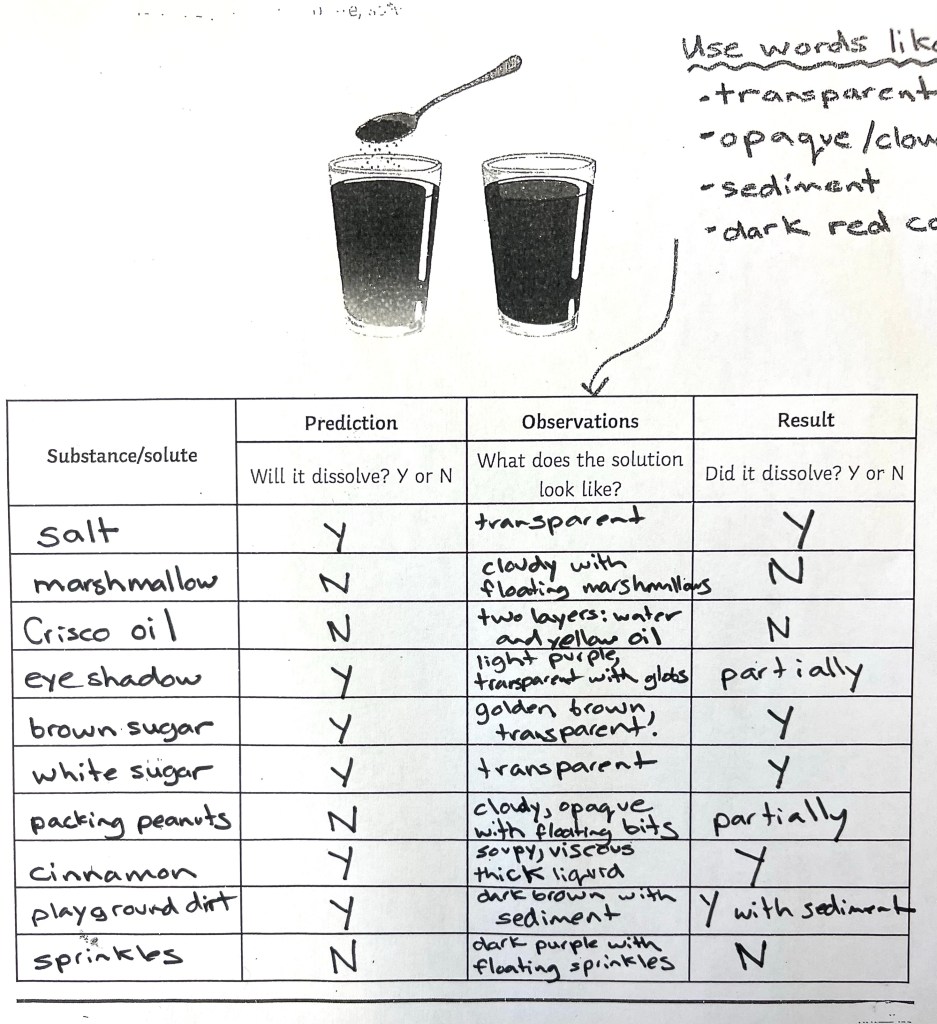 Use words
- transparent
- opaque /
- sediment
- dark red
Substance/solute
Prediction
Will it dissolve? Y or N
Observations
What does the solution
look like?
Result
Did it dissolve? Y or N
salt
Y
transparent
Y
marshmallow
N
cloudy with
floating marshmallows
N
Crisco oil
N
two layers: water
and yellow oil
N
eye shadow
Y
light purple,
transparent with globs
partially
brown sugar
Y
golden brown,
transparent!
Y
white sugar
Y
transparent
Y
packing peanuts
N
cloudy, opaque
with floating bits
partially
cinnamon
Y
soupy, viscous
thick liquid
Y
playground dirt
Y
dark brown with
sediment
Y with sediment
sprinkles
N
dark purple with
floating sprinkles
N